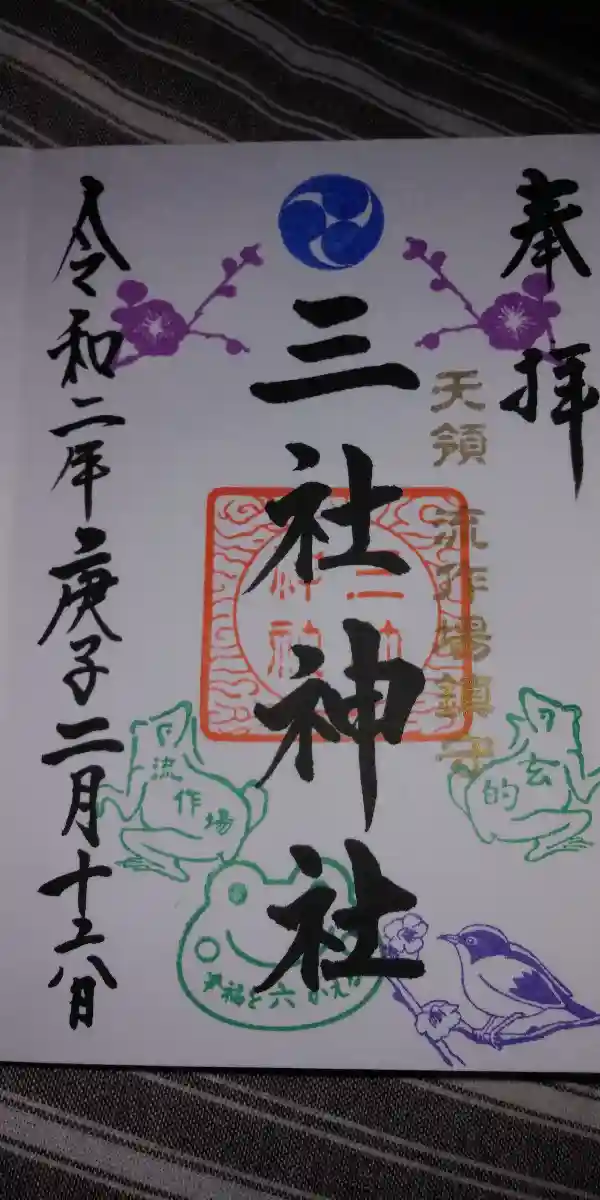 奉拝
天領 流作場鎮守
三社神社
三社
神社
令和二年庚子二月十六日
流
作
場
玄
的
六